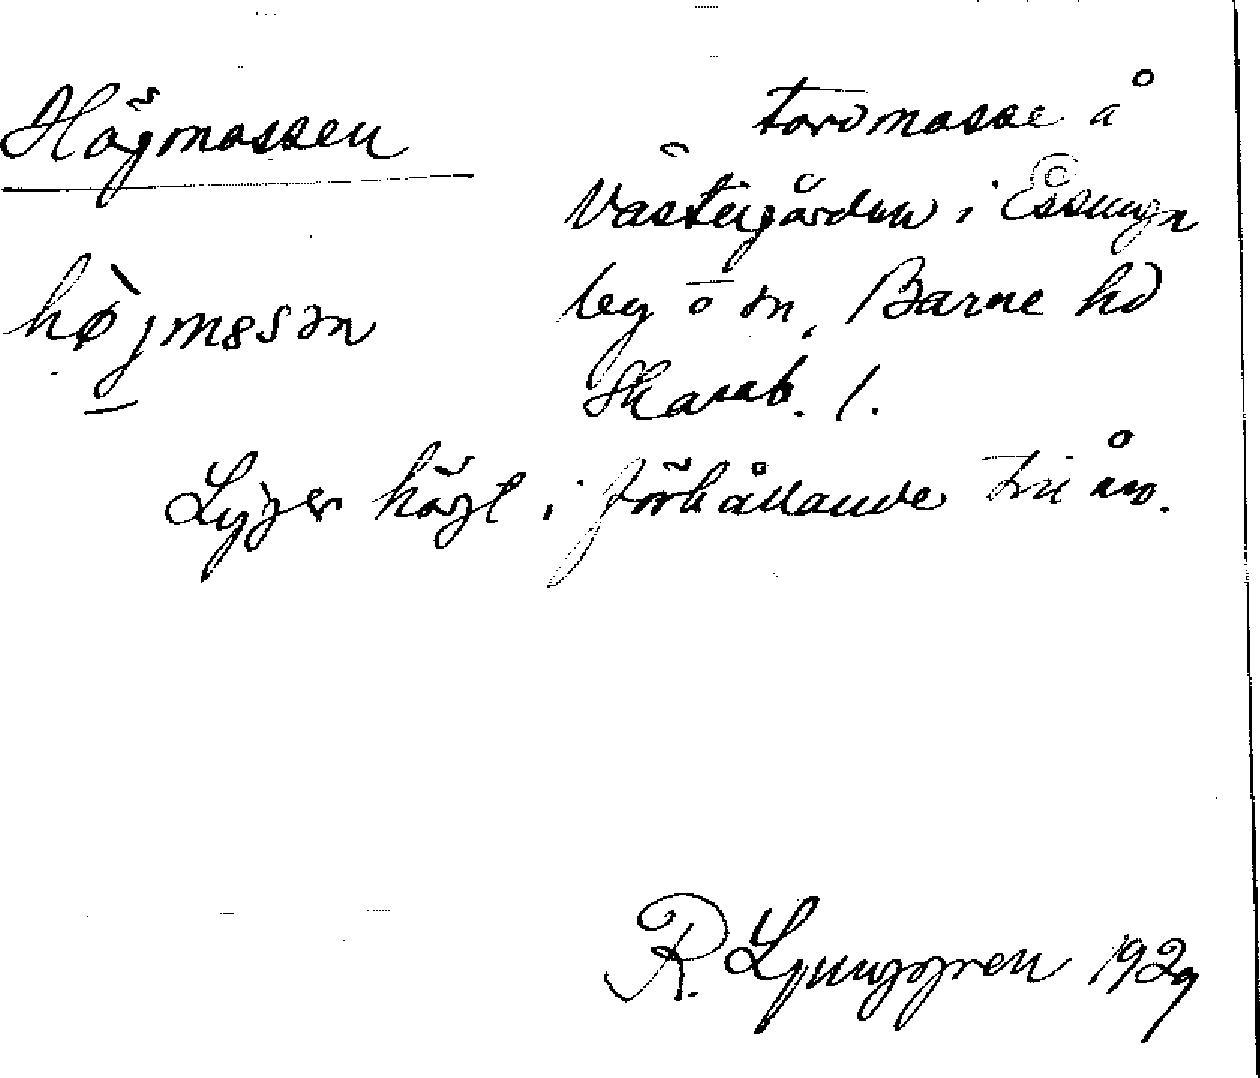 Högmossen
torvmosse å
Västergården i Essunga
by o sn, Barne hd
Skarab. l.
hø̀jmsən
Ligger högt i förhållande till ån.
R. Ljunggren 1929